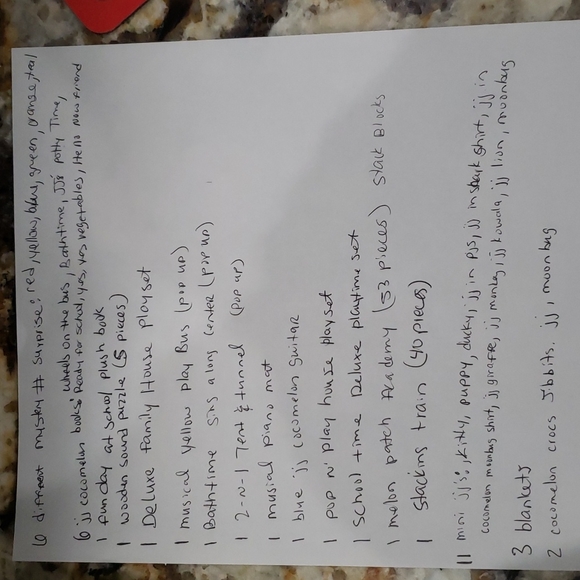 6 different mystery # surprise: red, yellow, blue, green, orange, teal
6 jj cocomelon books: wheels on the bus, Bathtime, JJ's Potty Time,
Ready for school, yes, yes vegetables, Hello New Friend
1 funday at school plush book
1 wooden sound puzzle (5 pieces)
1 Deluxe Family House Playset
1 musical yellow play Bus (pop up)
1 Bathtime sing along center (pop up)
1 2-N-1 Tent & tunnel (pop up)
1 musical piano mat
1 blue jj cocomelon guitar
1 pop n' play house playset
1 school time Deluxe playtime set
1 melon patch Academy (53 pieces) Stack Blocks
1 stacking train (40 pieces)
11 mini jj's: kitty, puppy, ducky, jj in pjs, jj in shark shirt, jj in
cocomelon moonbug shirt, jj giraffe, jj monkey, jj kowala, jj lion, moonbug
3 blankets
2 cocomelon crocs Jibbits. jj, moonbug